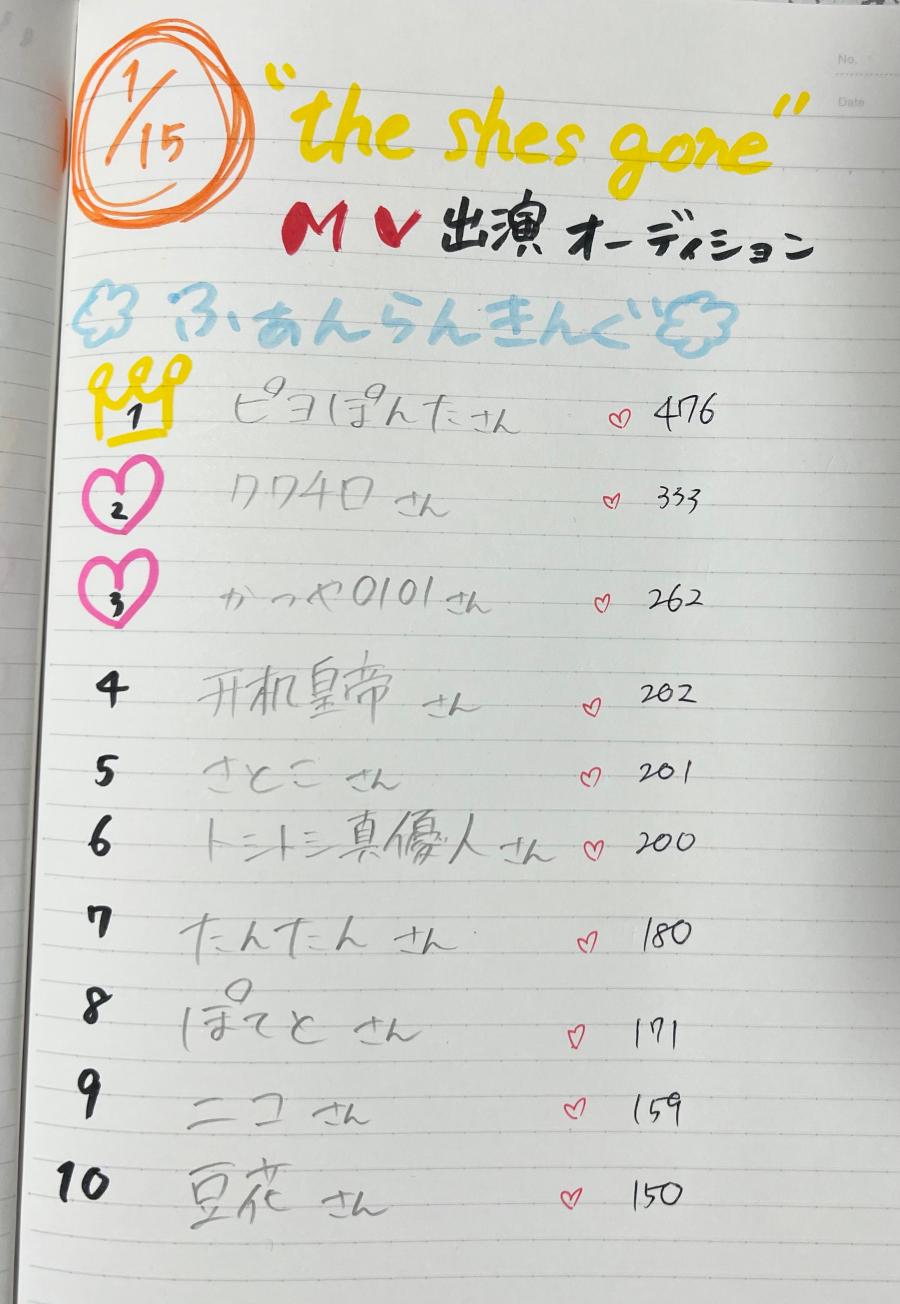 No.
Date
1/15
"the shes gone"
MV 出演 オーディション
ふぁんらんきんぐ
1 ピヨぽんたさん ♡ 476
2 ワワ4口 さん ♡ 333
3 かつや0101さん ♡ 262
4 开机皇帝 さん ♡ 202
5 さとこ さん ♡ 201
6 トシトシ真優人 さん ♡ 200
7 たんたん さん ♡ 180
8 ぽてと さん ♡ 171
9 ニコ さん ♡ 159
10 豆花 さん ♡ 150